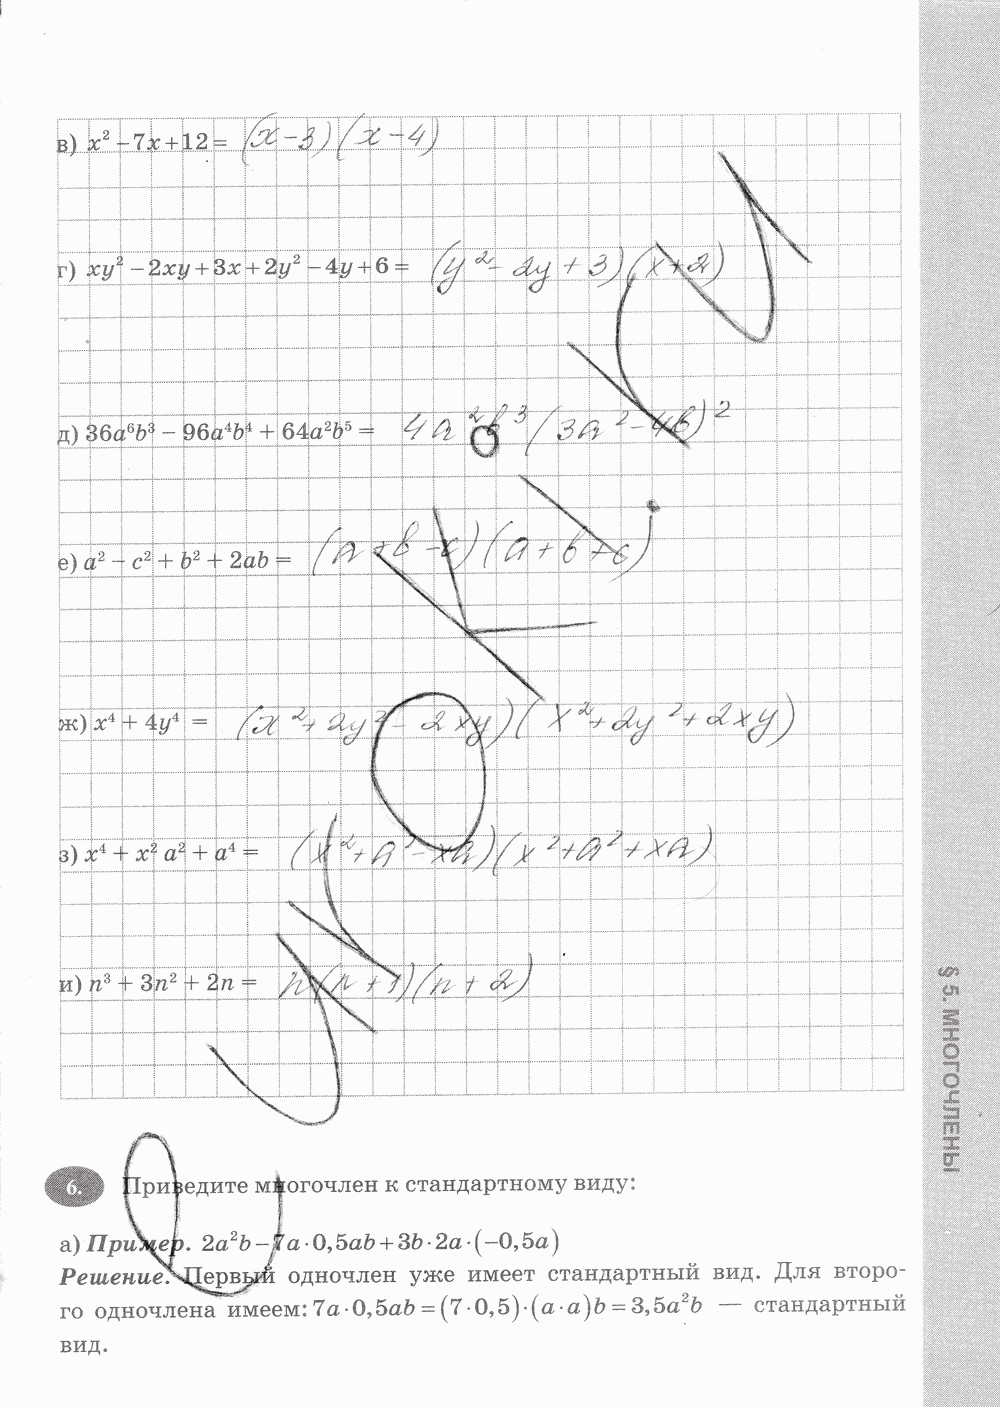 в) x² − 7x + 12 = (x − 3)(x − 4)
г) xy² − 2xy + 3x + 2y² − 4y + 6 = (y² − 2y + 3)(x + 2)
д) 36a⁶b³ − 96a⁴b⁴ + 64a²b⁵ = 4a²b³(3a² − 4b)²
е) a² − c² + b² + 2ab = (a + b − c)(a + b + c)
ж) x⁴ + 4y⁴ = (x² + 2y² − 2xy)(x² + 2y² + 2xy)
з) x⁴ + x² a² + a⁴ = (x² + a² − xa)(x² + a² + xa)
и) n³ + 3n² + 2n = n(n + 1)(n + 2)
§ 5. МНОГОЧЛЕНЫ
6. Приведите многочлен к стандартному виду:
а) Пример. 2a²b − 7a · 0,5ab + 3b · 2a · (−0,5a)
Решение. Первый одночлен уже имеет стандартный вид. Для второ-
го одночлена имеем: 7a · 0,5ab = (7 · 0,5) · (a · a)b = 3,5a²b — стандартный
вид.